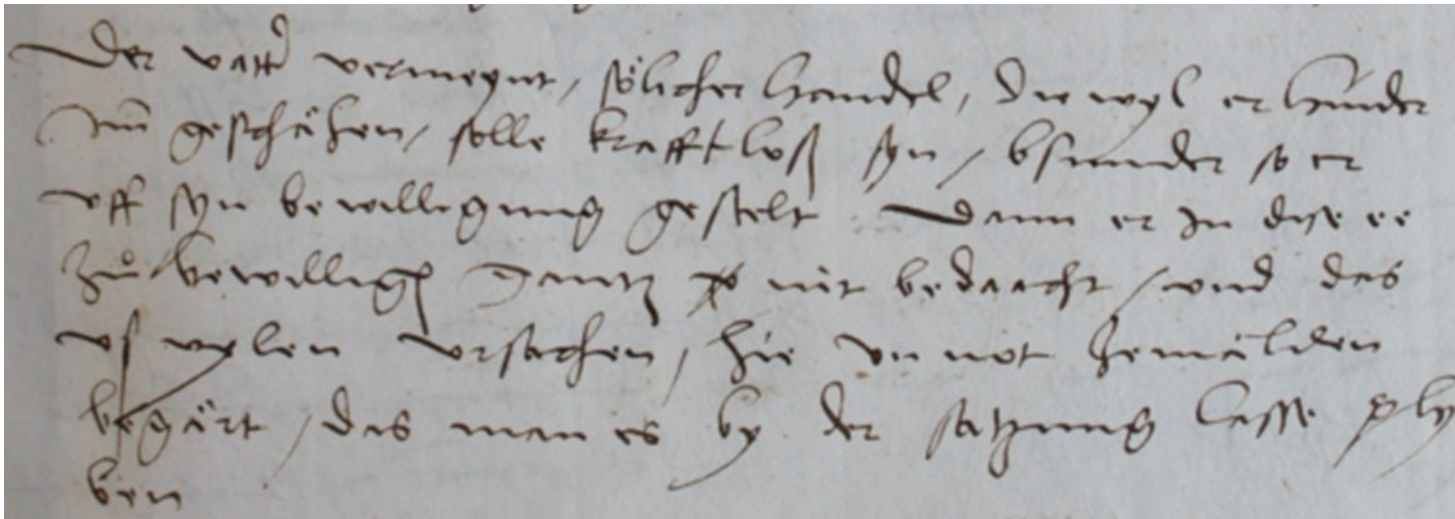 Der vatter vermeynt, sölicher handel, die wyl er hinder
im geschähen, solle krafftloß syn, bsunder so er
uff syn bewilligung gestelt. Dann er in dise ee
zů bewilligen gantz nit bedaacht, und das
us vylen ursachen, hie un not zemälden
begärt, das man es by der satzung lasse ply
ben